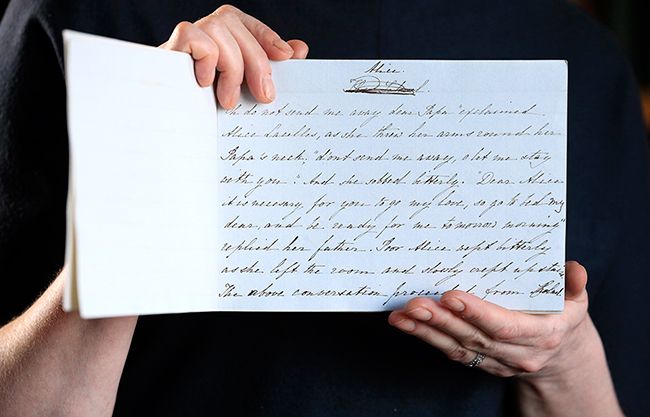 Alice.
Oh do not send me away dear Papa" exclaimed
Alice Laselles, as she threw her arms round her
Papa's neck, "dont send me away, o let me stay
with you". And she sobbed bitterly. "Dear Alice
it is necesary for you to go my love, so go to bed my
dear, and be ready for me tomorrow morning"
replied her father. Poor Alice wept bitterly
as she left the room and slowly crept up stairs
The above conversation proceeded from